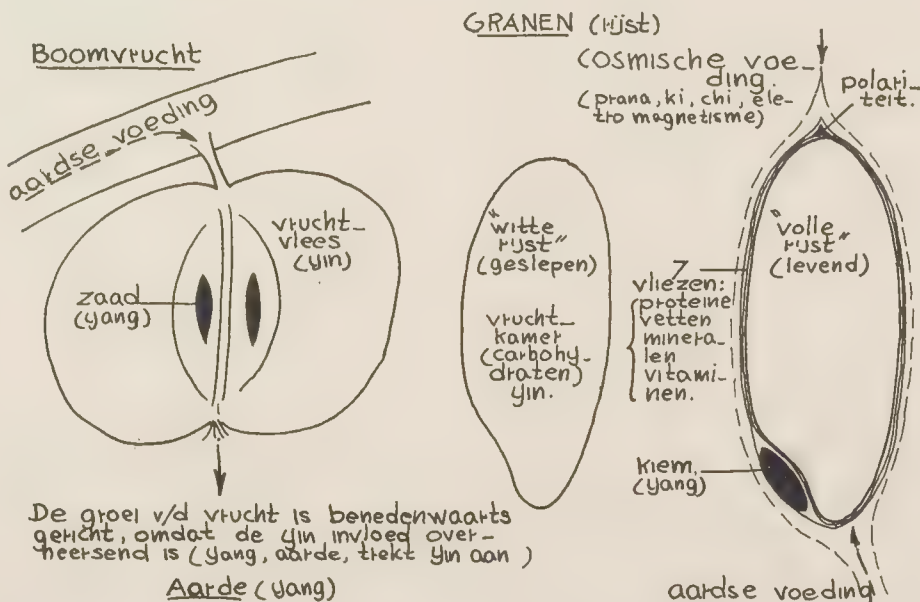 BOOMVRUCHT
aardse voeding
vrucht-
vlees
(yin)
zaad
(yang)
De groei v/d vrucht is benedenwaarts
gericht, omdat de yin invloed over-
heersend is (yang, aarde, trekt yin aan)
Aarde (yang)
GRANEN (rijst)
cosmische voe-
ding.
(prana, ki, chi, ele-
tro magnetisme)
polari-
teit.
"witte
rijst"
(geslepen)
vrucht-
kamer
(carbohy-
draten)
yin.
7
vliezen:
proteine
vetten
minera-
len
vitami-
nen.
"volle
rijst"
(levend)
kiem.
(yang)
aardse voeding